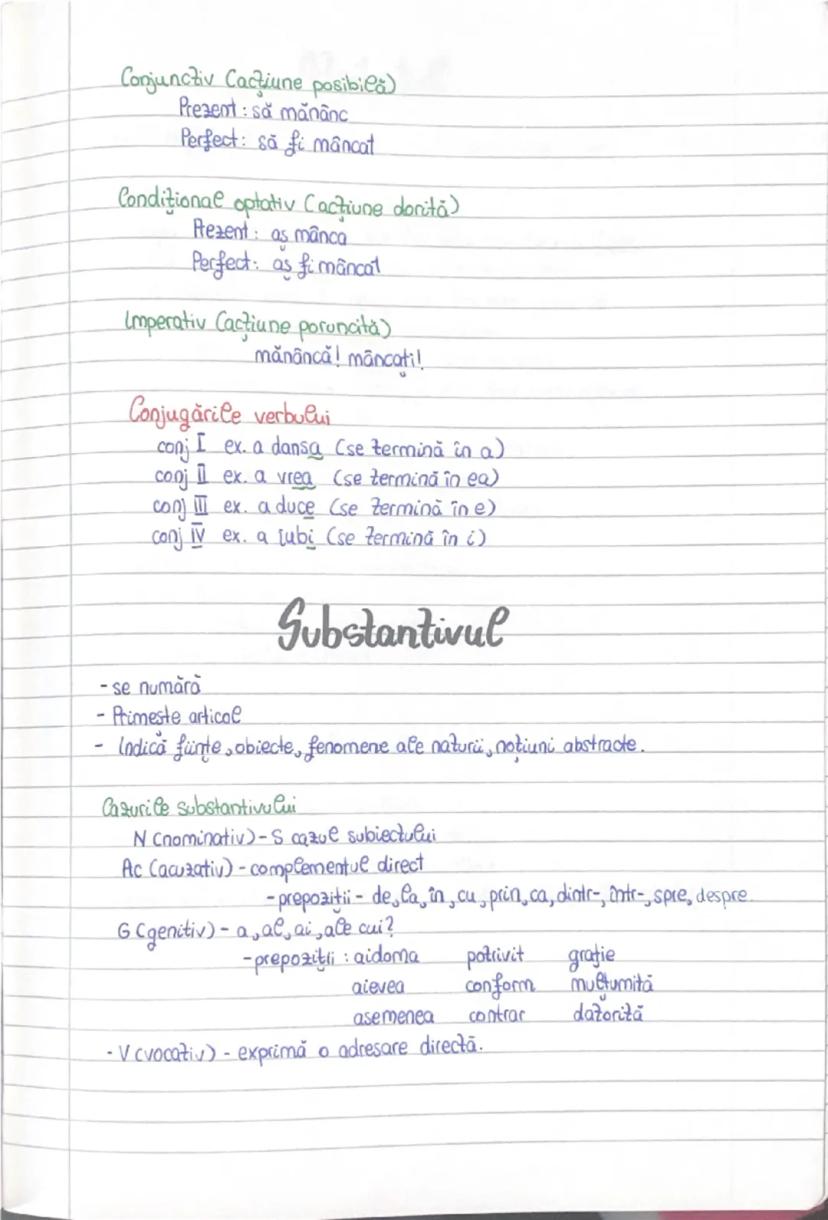 Conjunctiv (acțiune posibilă)
Prezent: să mănânc
Perfect: să fi mâncat
Condițional optativ (acțiune dorită)
Prezent: aș mânca
Perfect: aș fi mâncat
Imperativ (acțiune poruncită)
mănâncă! mâncați!
Conjugările verbului
conj I ex. a dansa (se termină în a)
conj II ex. a vrea (se termină în ea)
conj III ex. a duce (se termină în e)
conj IV ex. a iubi (se termină în i)
Substantivul
- se numără
- Primește articol
- Indică ființe, obiecte, fenomene ale naturii, noțiuni abstracte.
Cazurile substantivului
N (nominativ) - S cazul subiectului
Ac (acuzativ) - complementul direct
- prepoziții - de, la, în, cu, prin, ca, dintr-, într-, spre, despre.
G (genitiv) - a, al, ai, ale cui?
- prepoziții: aidoma potrivit grație
aievea conform mulțumită
asemenea contrar datorită
- V (vocativ) - exprimă o adresare directă.